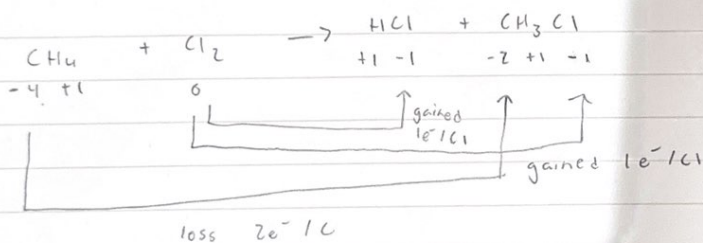 CH4 + Cl2 —> HCl + CH3Cl
-4 +1 0 +1 -1 -2 +1 -1
gained
1e⁻/Cl
gained 1e⁻/Cl
loss 2e⁻/C